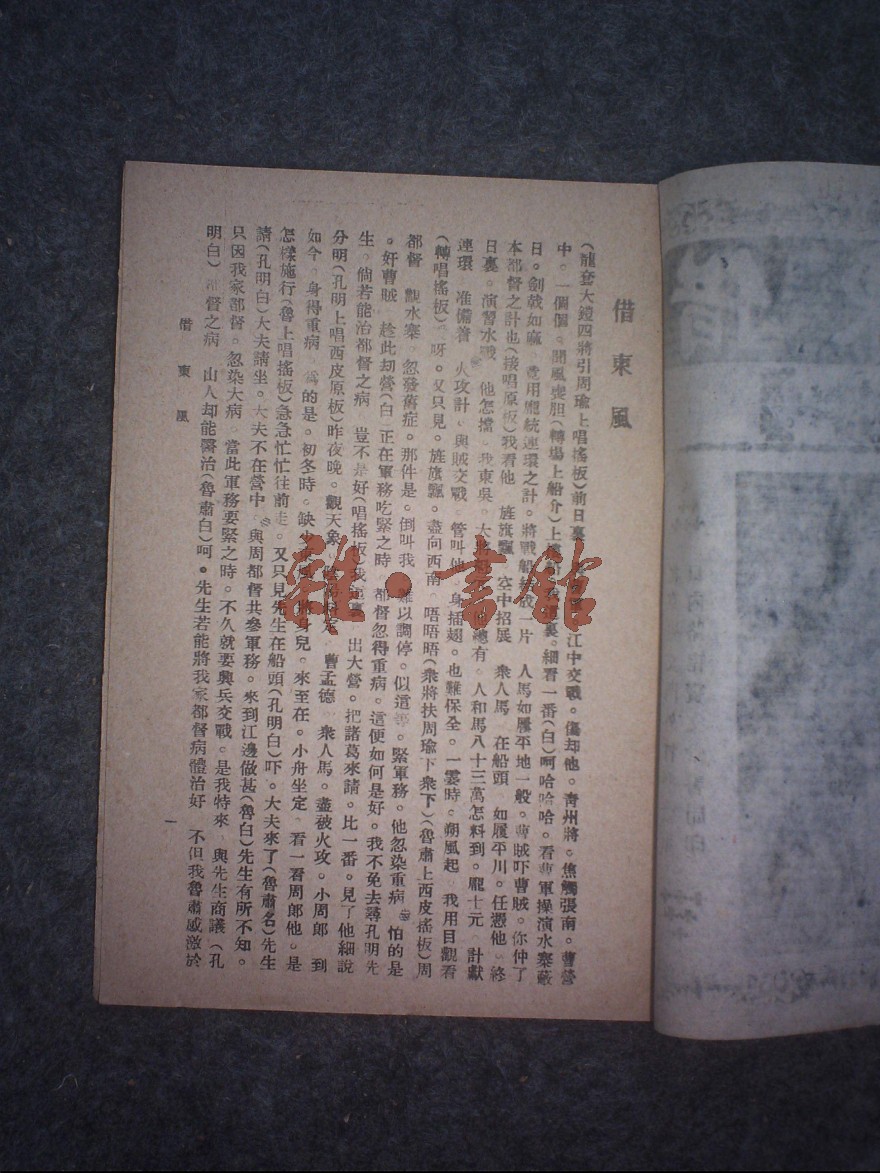 借東風
(龍套大鎧四將引周瑜上唱搖板)前日裏 江中交戰。傷却他。青州將。焦觸張南。曹營
中。一個個。聞風喪胆(轉場上紹介)上 裏。細看一番(白)呵哈哈哈。看曹軍操演水寨蔽
日。劍戟如麻。 用龐統連環之計。將戰船 放一片 人馬如履平地一般。曹賊吓曹賊。你仲了
本都督之計也(接唱原板)我看他 旌旗飄 空中招展 衆人馬 在船頭 如履平川。任憑他。終
日裏。演習水戰 他怎擋。我東吳。大將 總有。人和馬八十三萬怎料到。龐士元 計獻
連環 准備著 火攻計。與賊交戰 管叫他 身插翅。也難保全。一霎時。朔風起 我用目觀看
(轉唱搖板)呀。又只見。旌旗飄。盡向西南。唔唔唔(衆將扶周瑜下衆下)(魯肅上西皮搖板)周
都督 觀水寨。忽發舊症。那件是。倒叫我 難以調停。似這 。緊軍務。他忽染重病。 怕的是
。奸曹賊 趁此刧營(白)正在軍務吃緊之時 都督忽得重病。這便如何是好。我不免去尋孔明先
生。倘若能治都督之病 豈不是好(唱搖板)我 出大營。把諸葛來請。比一番。見了他細說
分明(孔明上唱西皮原板)昨夜晚。觀天象 曹孟德 衆人馬。盡被火攻。小周郎 到
如今。身得重病 爲的是。初冬時。缺少東風 將身兒。來至在。小舟坐定。看一看周郎他。是
怎樣施行(魯上唱搖板)急急忙忙往前走。又只見先生在船頭(孔明白)吓。大夫來了(魯肅名)先生
請(孔明白)大夫請坐。大夫不在營中。與周都督共參軍務。來到江邊做甚(魯白)先生有所不知。
只因我家都督。忽染大病。當此軍務要緊之時。不久就要興兵交戰。是我特來 與先生商議(孔
明白) 督之病 山人却能醫治(魯肅白)呵。先生若能將我家都督病體治好 不但我魯肅感激於
借東風
一
雜·書館